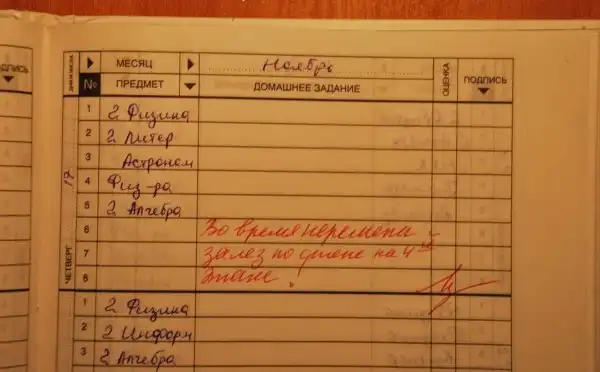 ПОДПИСЬ
ДНИ И ЧИСЛА МЕСЯЦ Ноябрь ОЦЕНКА ПОДПИСЬ
№ ПРЕДМЕТ ДОМАШНЕЕ ЗАДАНИЕ
ЧЕТВЕРГ 17
1 2 Физика
2 2 Литер
3 Астроном
4 Физ-ра
5 2 Алгебра
6 Во время перемены
7 залез по стене на 4ый
8 этаж.
1 2 Физика
2 2 Информ
3 2 Алгебра